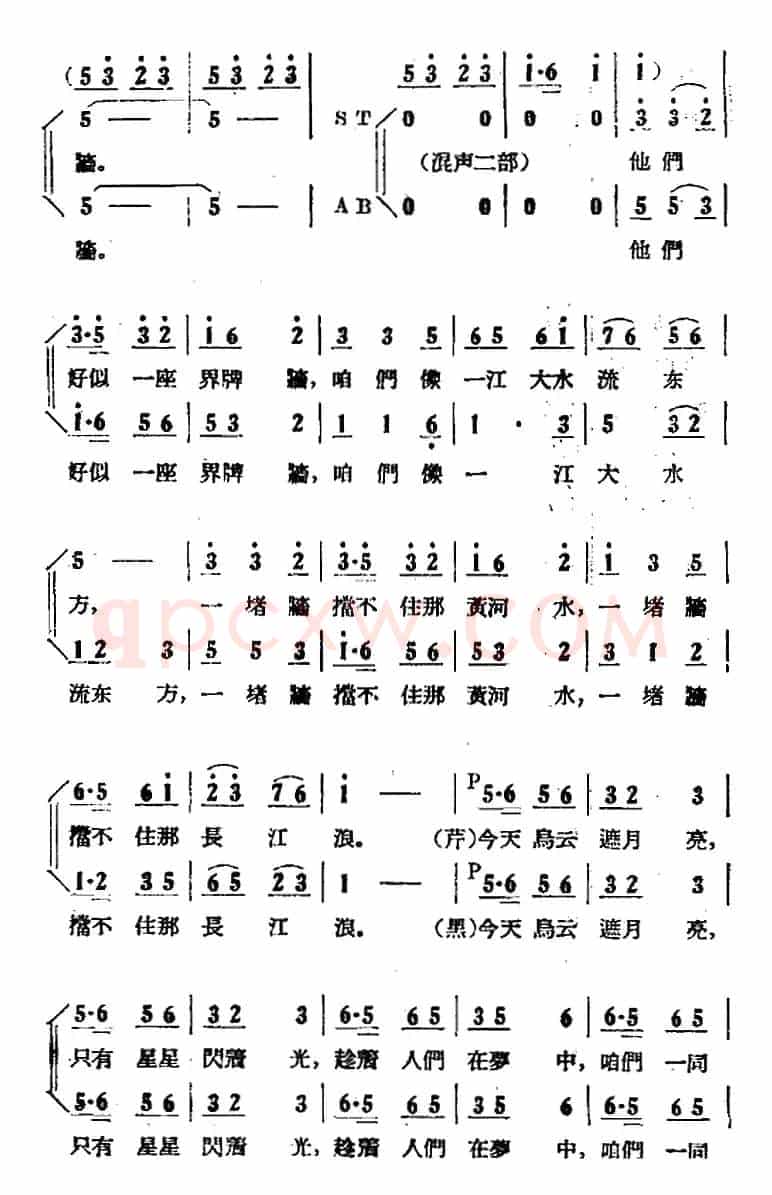 (5 3 2 3 | 5 3 2 3 | 5 3 2 3 | 1·6 1 | 1)
5 — — | 5 — — | S T 0 0 | 0 0 | 3 3 2
牆。 (混声二部) 他們
5 — — | 5 — — | A B 0 0 | 0 0 | 5 5 3
牆。 他們
3·5 3 2 | 1 6 2 | 3 3 5 | 6 5 6 1 | 7 6 5 6 |
好似 一座 界牌 牆，咱 們 像 一江 大水 流 东
1·6 5 6 | 5 3 2 | 1 1 6 | 1 · 3 | 5 3 2 |
好似 一座 界牌 牆，咱 們 像 一 江 大 水
5 — — | 3 3 2 | 3·5 3 2 | 1 6 2 | 1 3 5 |
方， 一 堵 牆 擋不 住那 黃河 水，一 堵 牆
qpcxw.com
1 2 3 | 5 5 3 | 1·6 5 6 | 5 3 2 | 3 1 2 |
流东 方，一 堵 牆 擋不 住那 黃河 水，一 堵 牆
6·5 6 1 | 2 3 7 6 | 1 — — | P 5·6 5 6 | 3 2 3 |
擋不 住那 長 江 浪。 (芹)今天 烏云 遮月 亮，
1·2 3 5 | 6 5 2 3 | 1 — — | P 5·6 5 6 | 3 2 3 |
擋不 住那 長 江 浪。 (黑)今天 烏云 遮月 亮，
5·6 5 6 | 3 2 3 | 6·5 6 5 | 3 5 6 | 6·5 6 5 |
只有 星星 閃着 光，趁着 人們 在夢 中，咱們 一同
5·6 5 6 | 3 2 3 | 6·5 6 5 | 3 5 6 | 6·5 6 5 |
只有 星星 閃着 光，趁着 人們 在夢 中，咱們 一同